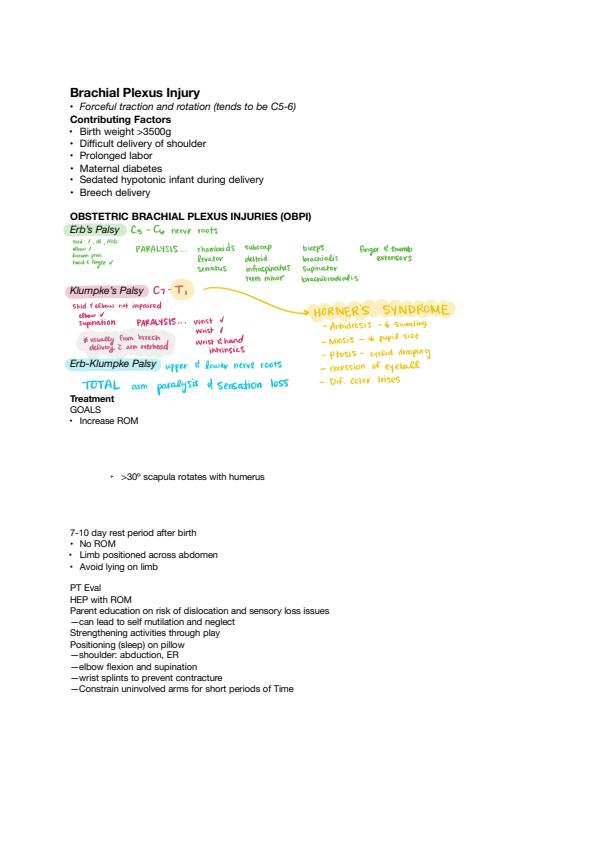 Brachial Plexus Injury
• Forceful traction and rotation (tends to be C5-6)
Contributing Factors
• Birth weight >3500g
• Difficult delivery of shoulder
• Prolonged labor
• Maternal diabetes
• Sedated hypotonic infant during delivery
• Breech delivery
OBSTETRIC BRACHIAL PLEXUS INJURIES (OBPI)
Erb's Palsy C5 - C6 nerve roots
shld: / , IR , ADD
elbow /
forearm pron
hand & finger ✓
PARALYSIS...
rhomboids
levator
serratus
subscap
deltoid
infraspinatus
teres minor
biceps
brachialis
supinator
brachioradialis
finger & thumb
extensors
Klumpke's Palsy C7 - T1
shld & elbow not impaired
elbow ✓
supination
PARALYSIS...
wrist ✓
wrist ✓
wrist & hand
intrinsics
* usually from breech
delivery, c̄ arm overhead
HORNER'S SYNDROME
- Anhidrosis - ↓ sweating
- Miosis - ↓ pupil size
- ptosis - eyelid drooping
- recession of eyeball
- Dif. color irises
Erb-Klumpke Palsy upper & lower nerve roots
TOTAL arm paralysis & sensation loss
Treatment
GOALS
• Increase ROM
• >30º scapula rotates with humerus
7-10 day rest period after birth
• No ROM
• Limb positioned across abdomen
• Avoid lying on limb
PT Eval
HEP with ROM
Parent education on risk of dislocation and sensory loss issues
—can lead to self mutilation and neglect
Strengthening activities through play
Positioning (sleep) on pillow
—shoulder: abduction, ER
—elbow flexion and supination
—wrist splints to prevent contracture
—Constrain uninvolved arms for short periods of Time